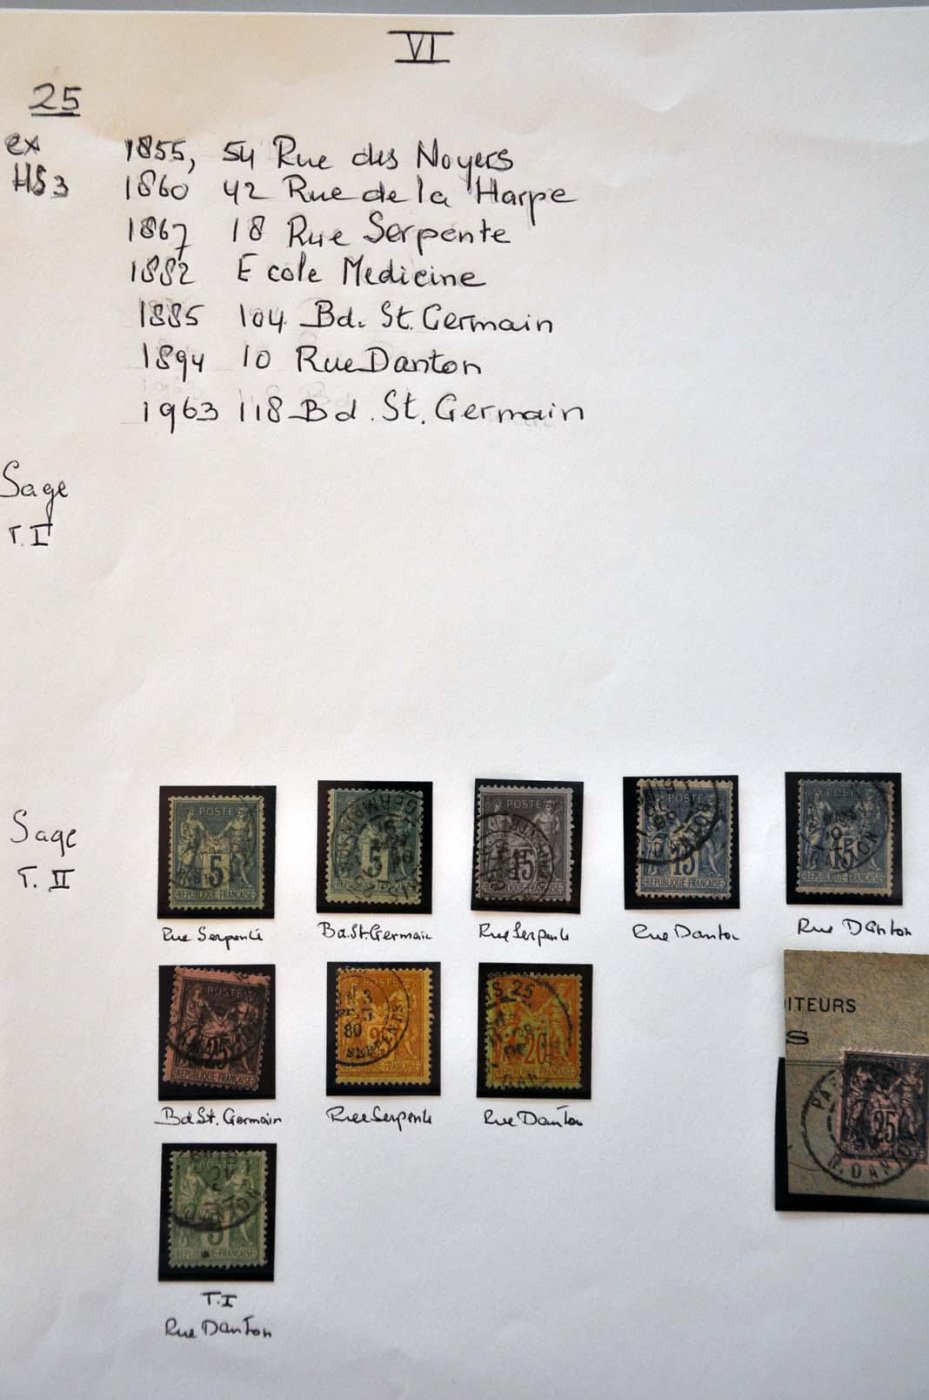 VI
25
ex 1855, 54 Rue des Noyers
HS3 1860 42 Rue de la Harpe
1867 18 Rue Serpente
1882 Ecole Medicine
1885 104 Bd. St. Germain
1894 10 Rue Danton
1963 118 Bd. St. Germain
Sage
T.I
Sage
T. II
POSTE
5
REPUBLIQUE FRANÇAISE
5
REPUBLIQUE FRANÇAISE
POSTE
15
REPUBLIQUE FRANÇAISE
15
REPUBLIQUE FRANÇAISE
15
REPUBLIQUE FRANÇAISE
Rue Serpente
Bd. St. Germain
Rue Serpente
Rue Danton
Rue Danton
POSTE
25
REPUBLIQUE FRANÇAISE
80
SERPENTE
REPUBLIQUE FRANÇAISE
S. 25
20
REPUBLIQUE FRANÇAISE
ITEURS
S
PA
25
R. DANTO
Bd. St. Germain
Rue Serpente
Rue Danton
5
REPUBLIQUE FRANÇAISE
T.I
Rue Danton